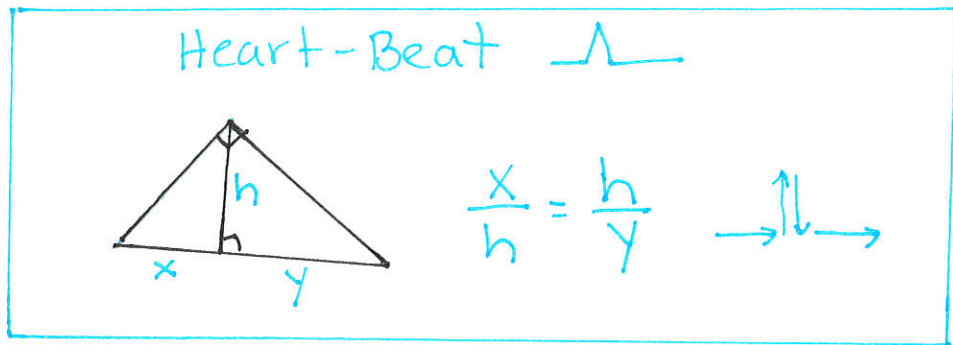 Heart-Beat
h
x y
x/h = h/y